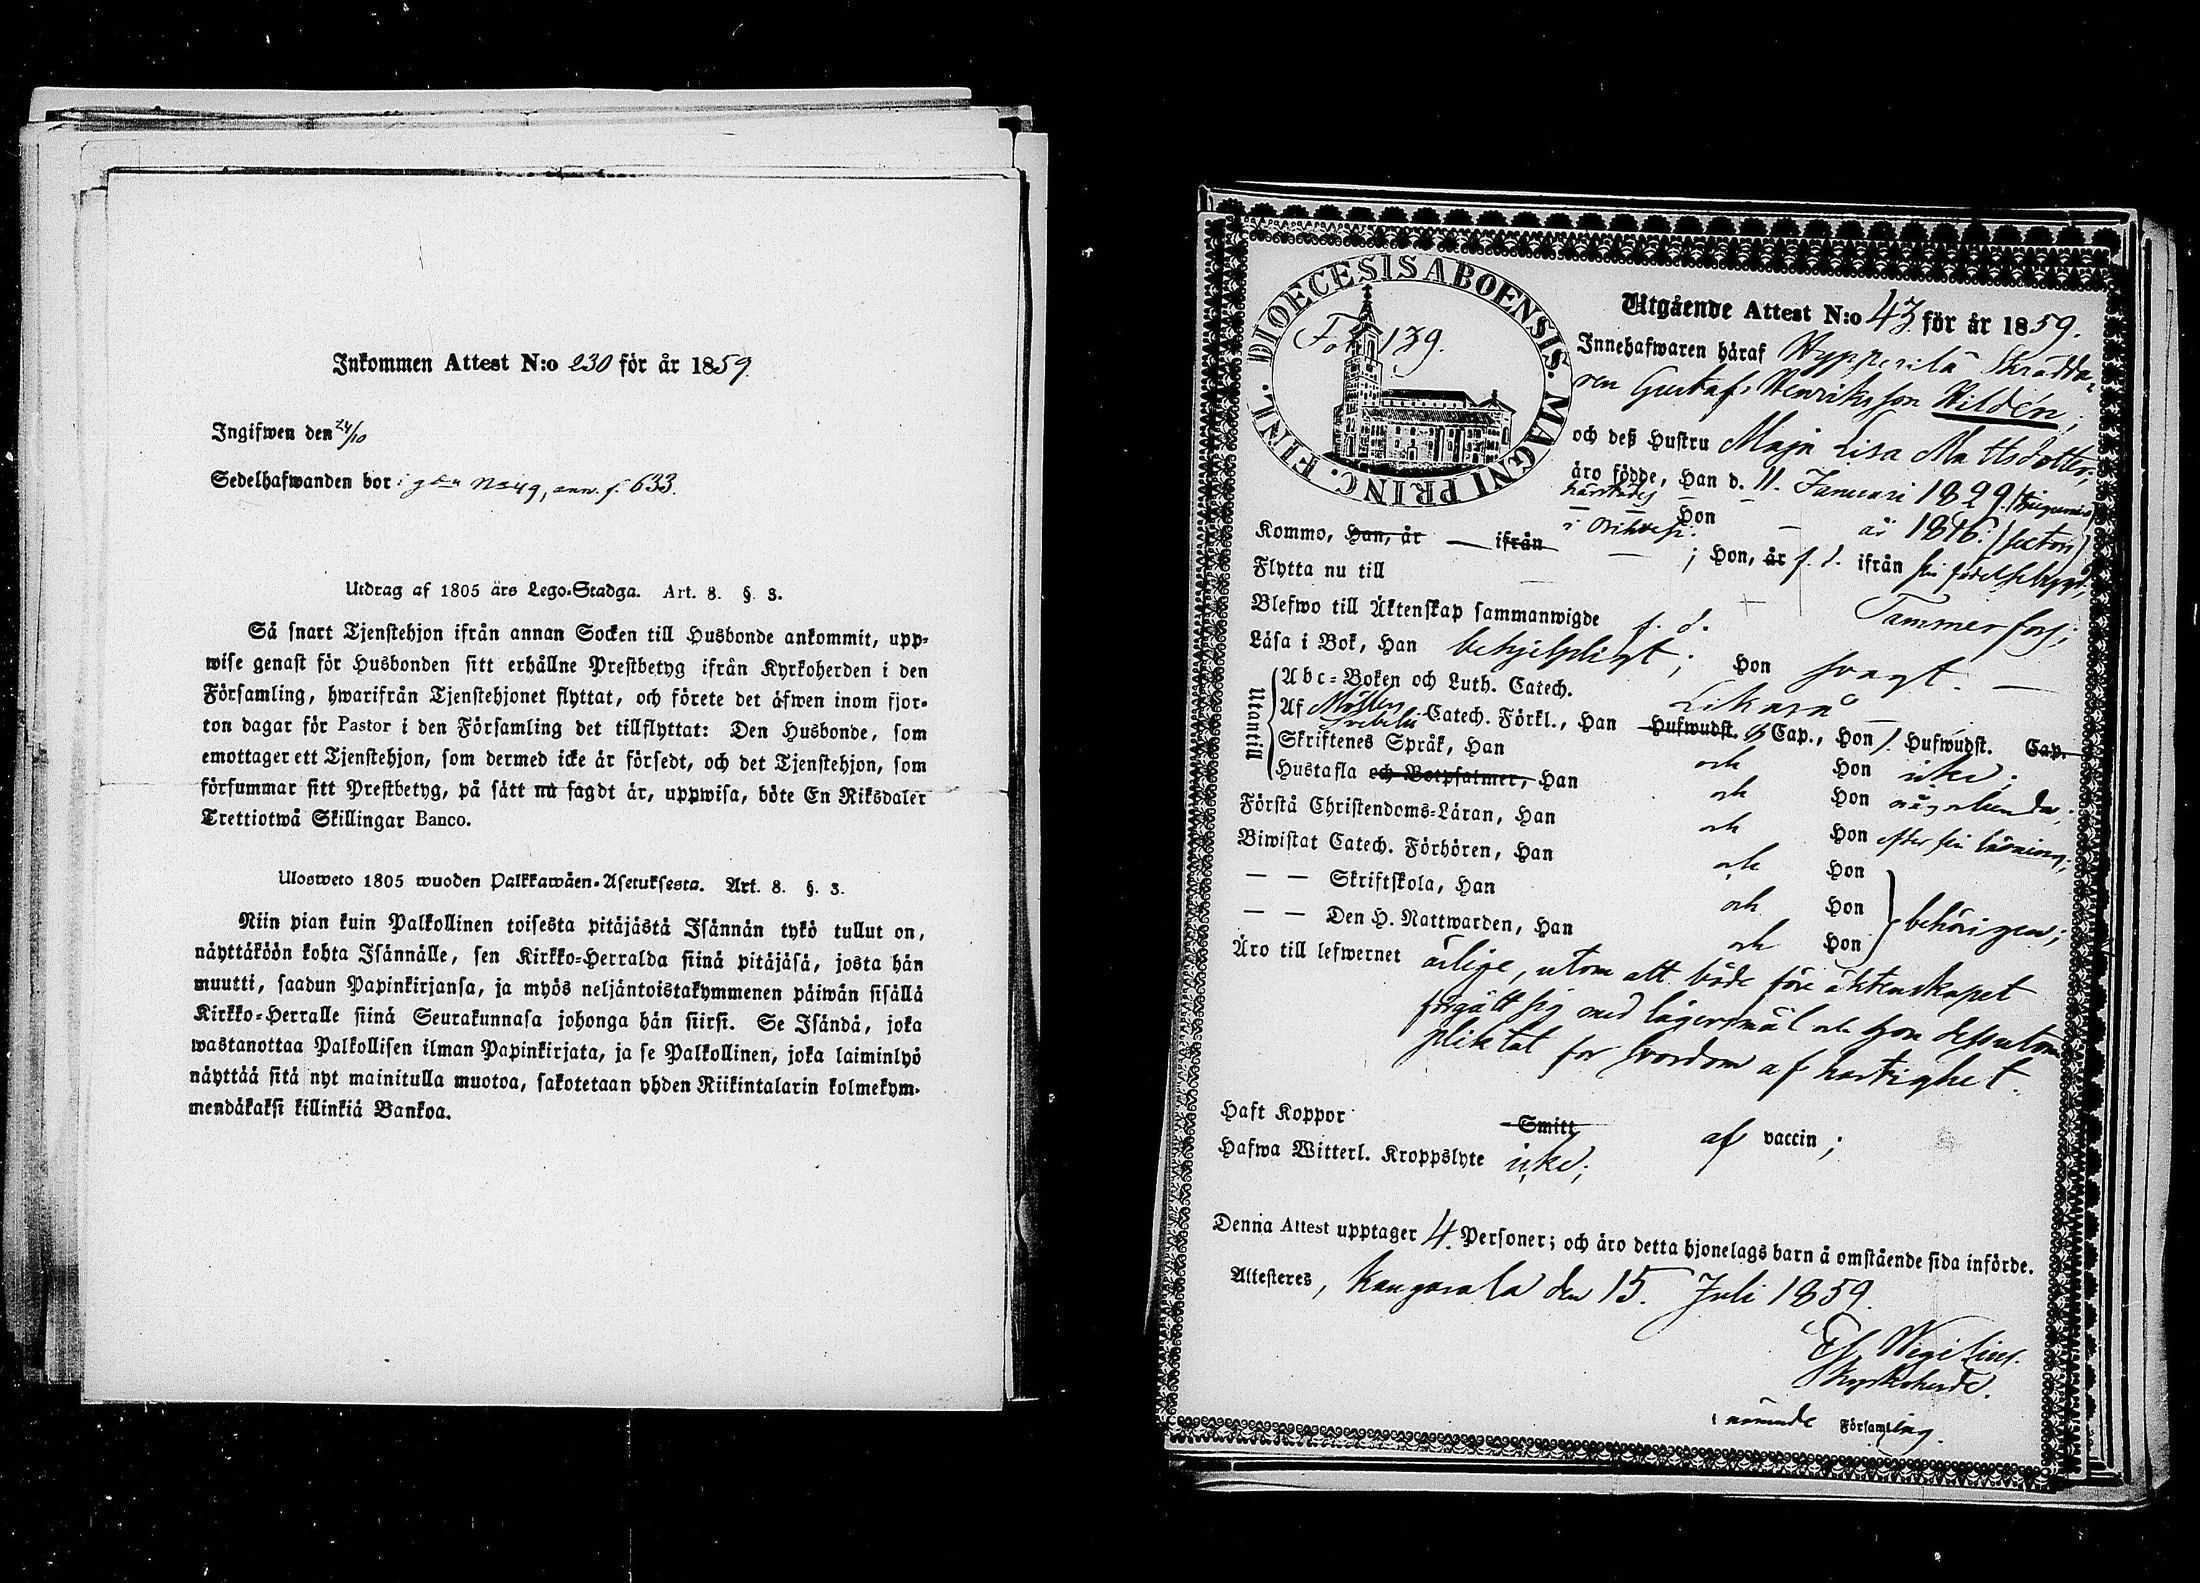 Inkommen Attest N:o 230 för år 1859
Ingifwen den 24/10
Sedelhafwanden bor i gden No 49, ann. f. 633.
Utdrag af 1805 års Lego-Stadga. Art. 8. §. 3.
Så snart Tjenstehjon ifrån annan Socken till Husbonde ankommit, upp-
wise genast för Husbonden sitt erhållne Prestbetyg ifrån Kyrkoherden i den
Församling, hwarifrån Tjenstehjonet flyttat, och förete det äfwen inom fjor-
ton dagar för Pastor i den Församling det tillflyttat: Den Husbonde, som
emottager ett Tjenstehjon, som dermed icke är försedt, och det Tjenstehjon, som
försummar sitt Prestbetyg, på sätt nu sagdt är, uppwisa, böte En Riksdaler
Trettiotwå Skillingar Banco.
Ulosweto 1805 wuoden Palkkawäen-Asetuksesta. Art. 8. §. 3.
Niin pian kuin Palkollinen toisesta pitäjästä Isännän tykö tullut on,
näyttäköön kohta Isännälle, sen Kirkko-Herralda siinä pitäjäsä, josta hän
muutti, saadun Papinkirjansa, ja myös neljäntoistakymmenen päiwän sisällä
Kirkko-Herralle siinä Seurakunnasa johonga hän siirsi. Se Isändä, joka
wastanottaa Palkollisen ilman Papinkirjata, ja se Palkollinen, joka laiminlyö
näyttää sitä nyt mainitulla muotoa, sakotetaan yhden Riikintalarin kolmekym-
mendäkaksi killinkiä Bankoa.
DIOECESIS ABOENSIS. MAGNI PRINC. FINL.
Fol 139.
Utgående Attest N:o 43 för år 1859.
Innehafwaren häraf Hyppärilä Skrädda-
ren Gustaf Henriksson Hildén,
och deß Hustru Maja Lisa Mattsdotter,
äro födde, Han d. 11. Januari 1829.
härstädes — Hon — år 1816. (sexton)
i Orihvesi.
Kommo, Han, år — ifrån — ; Hon, år f. d. ifrån sin födelsebygd;
Flytta nu till — Tammerfors;
Blefwo till Äktenskap sammanwigde f. d.
Läsa i Bok, Han behjelpligt; Hon svagt. —
Utantill
Abc-Boken och Luth. Catech. Likaså
Af Möller Svebelii Catech. Förkl., Han Hufwudst. Cap., Hon 1. Hufwudst. Cap.
Skriftenes Språk, Han och Hon icke;
Hustafla och Botpsalmer, Han och Hon någorlunda;
Förstå Christendoms-Läran, Han och Hon efter sin läsning;
Biwistat Catech. Förhören, Han och Hon
— — Skriftskola, Han och Hon behörigen;
— — Den H. Nattwarden, Han och Hon
Äro till lefwernet ärlige, utom att både före äktenskapet
förgått sig med lägersmål och Hon dessutom
pliktat för hordom af hastighet.
Haft Koppor Smitt af vaccin;
Hafwa Witterl. Kroppslyte icke;
Denna Attest upptager 4. Personer; och äro detta hjonelags barn å omstående sida införde.
Attesteres, Kangasala den 15. Juli 1859.
Wigelius.
Kyrkoherde.
i nämnde Församling.